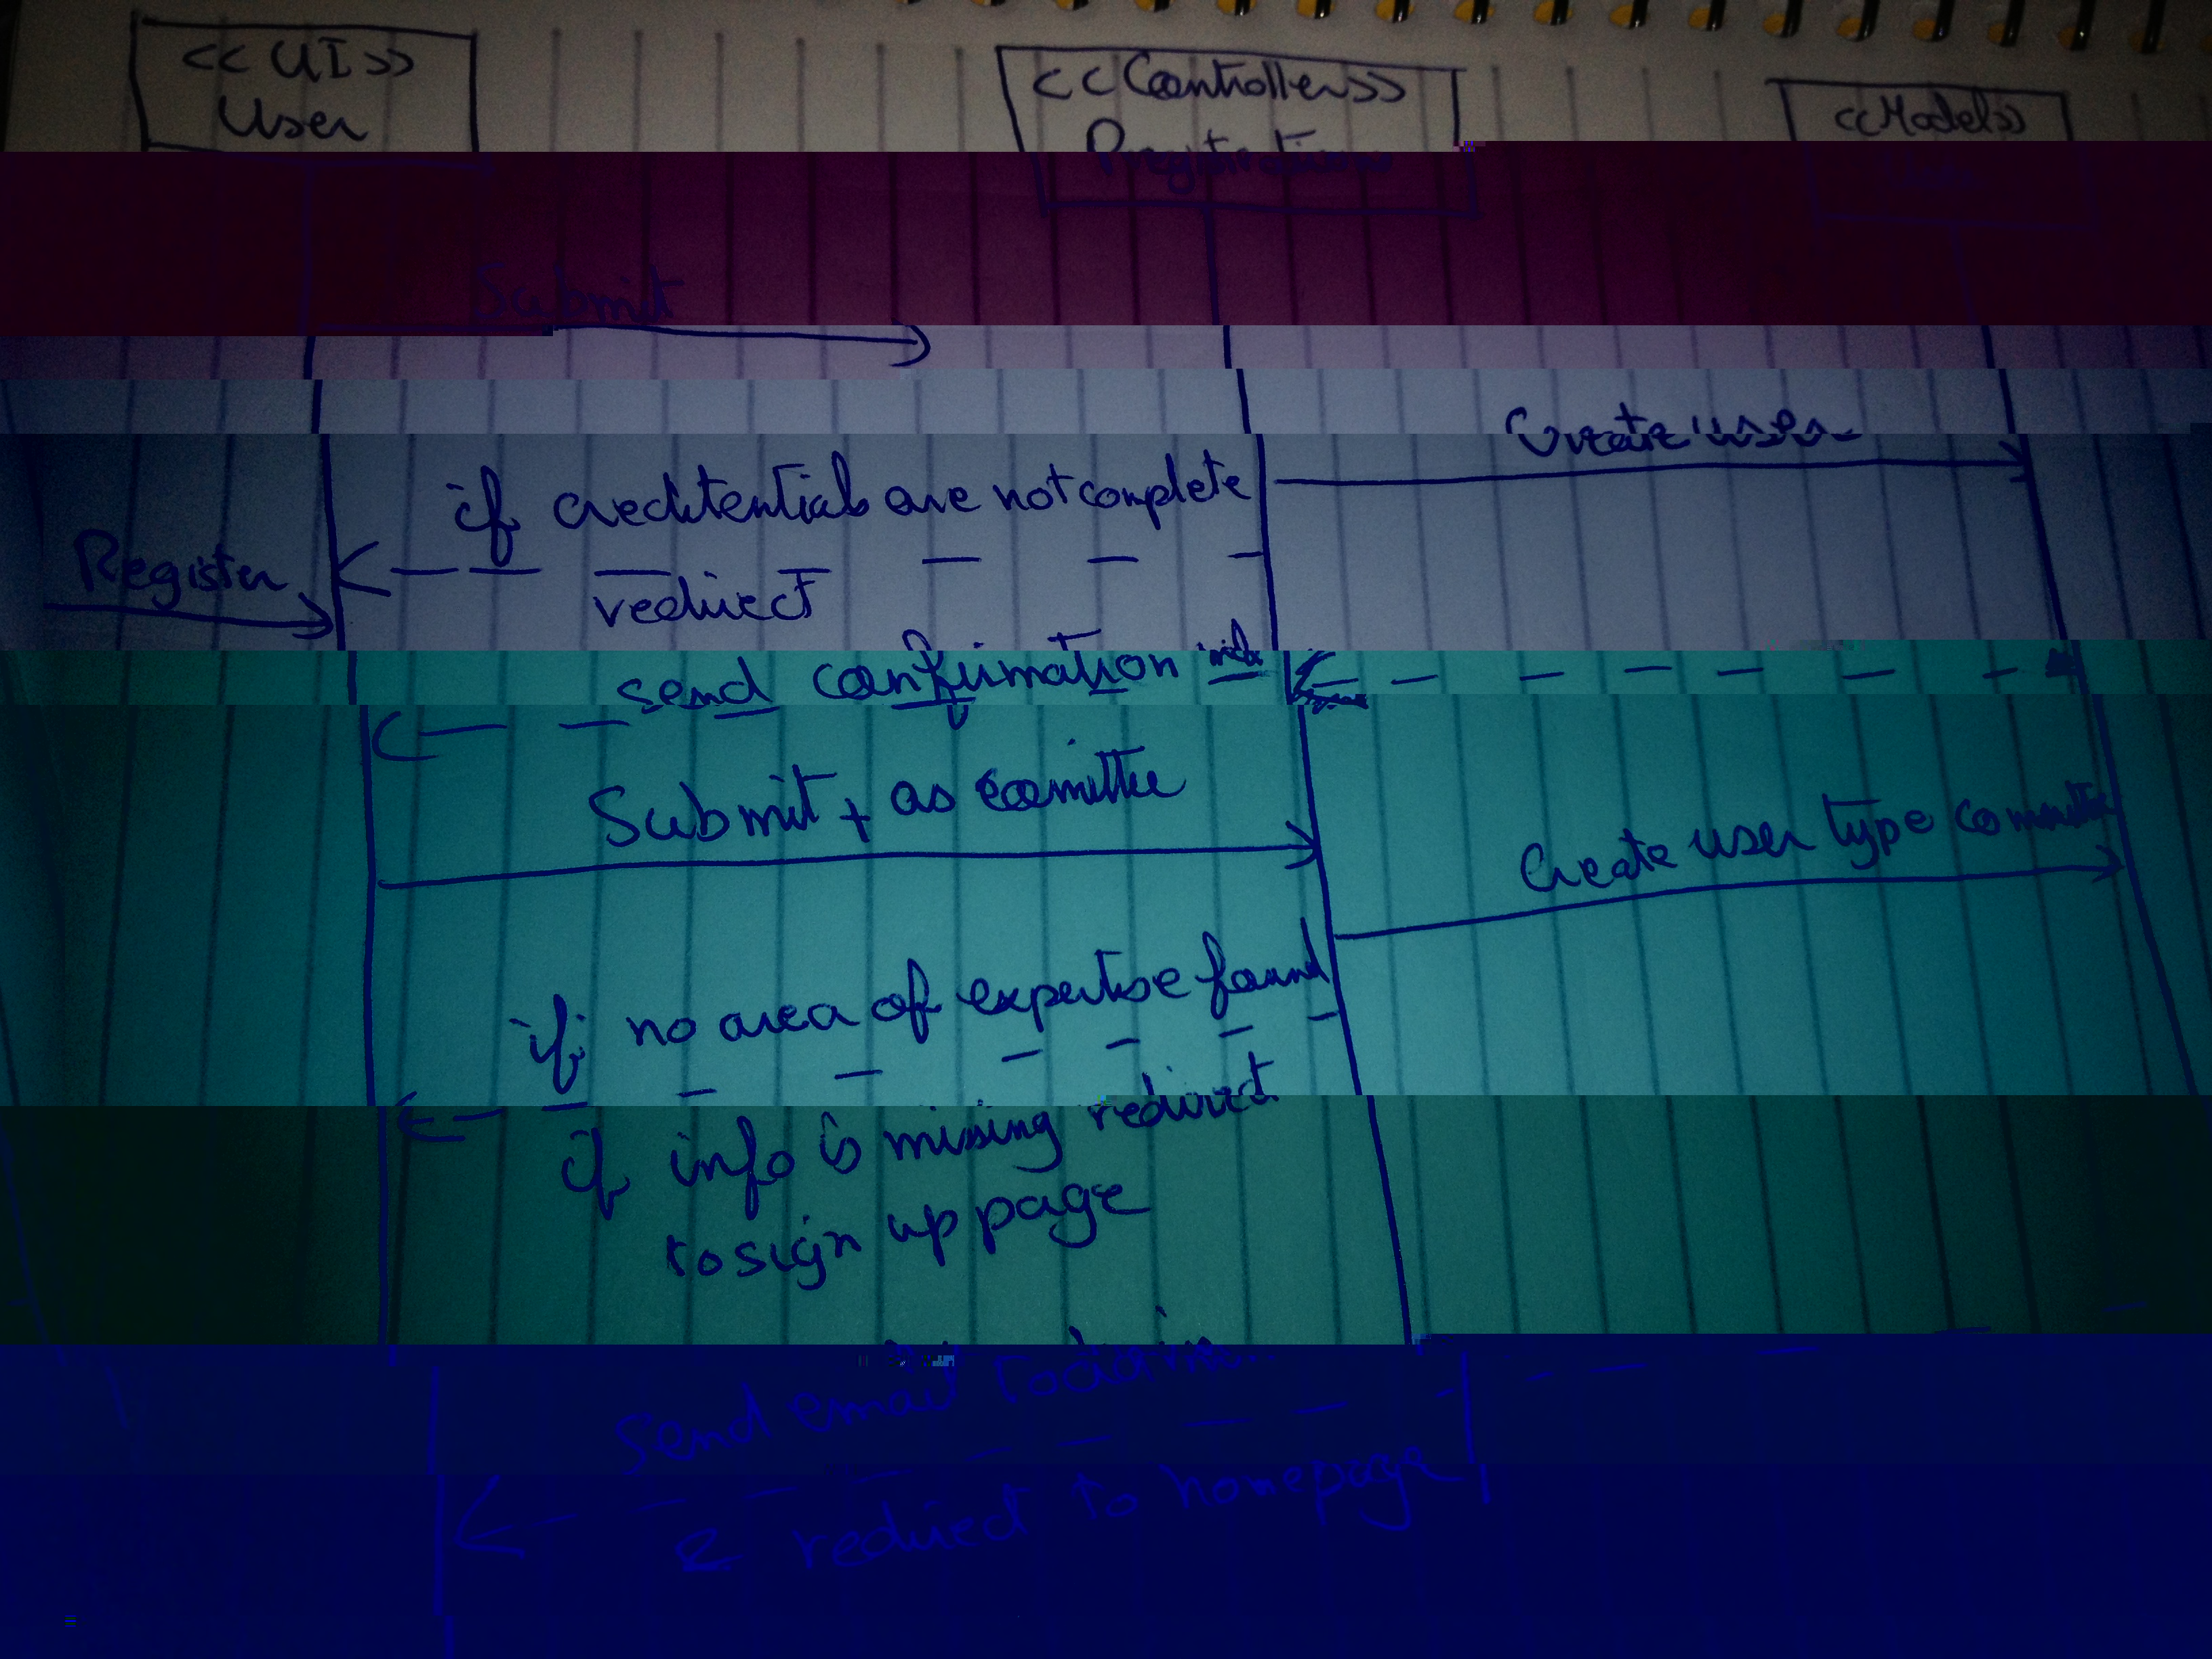 <<UI>>
User
<<Controller>>
Registration
<<Model>>
Submit
Create user
if creditentials are not complete
redirect
Register
send confirmation
Submit + as comittee
Create user type committee
if no area of expertise found
if info is missing redirect
to sign up page
Send email to admin
& redirect to homepage